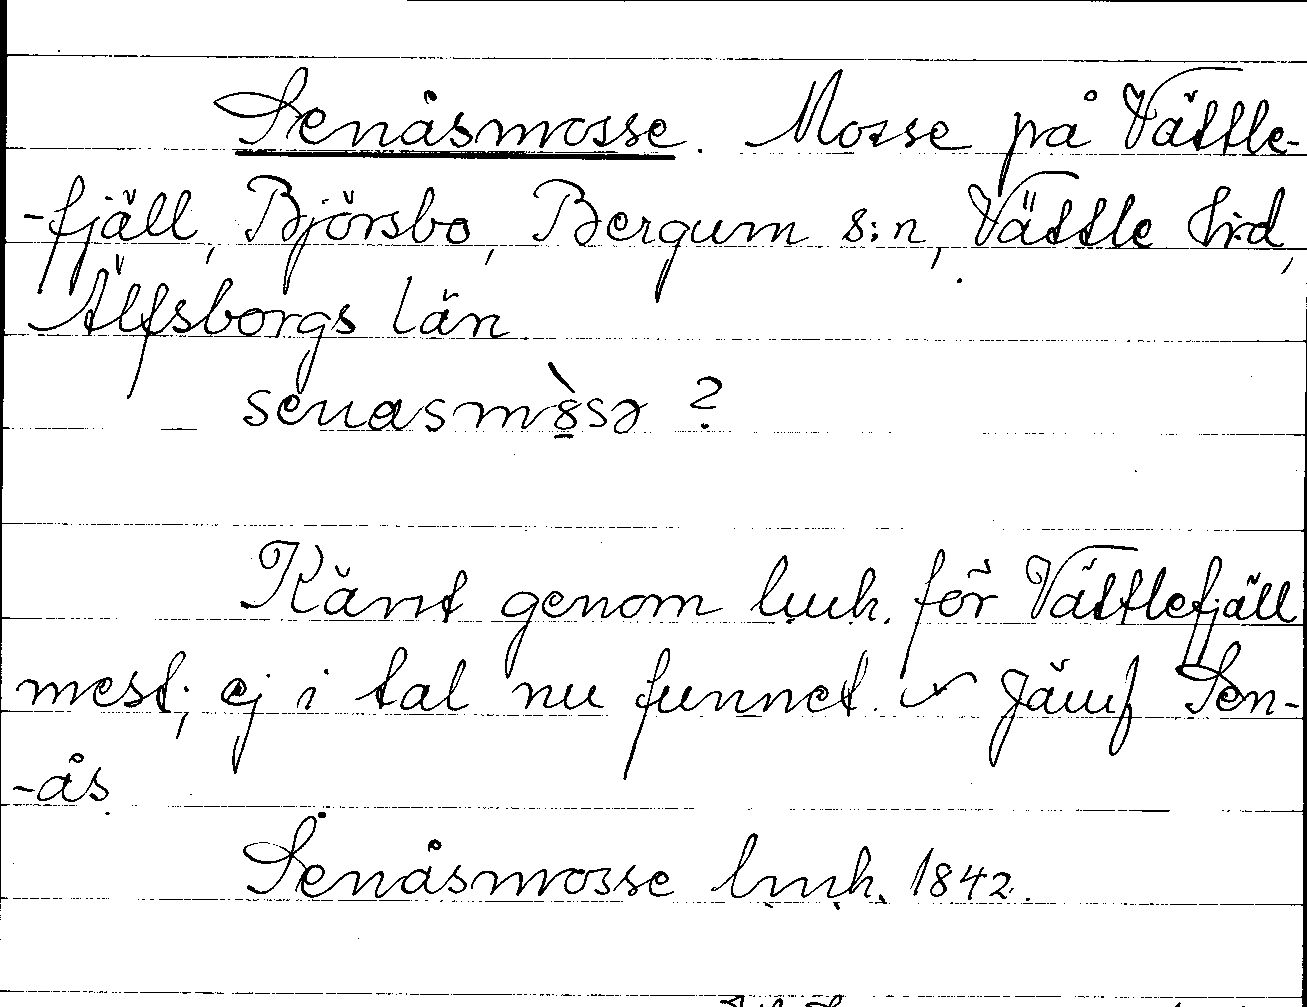 Senåsmosse. Mosse på Vättle-
-fjäll, Björsbo, Bergum s:n, Vättle h:d,
Älfsborgs län
senasmòsə ?
Känt genom l.m.k. för Vättlefjäll
mest; ej i tal nu funnet. Jämf Sen-
-ås.
Senåsmosse l.m.k. 1842.